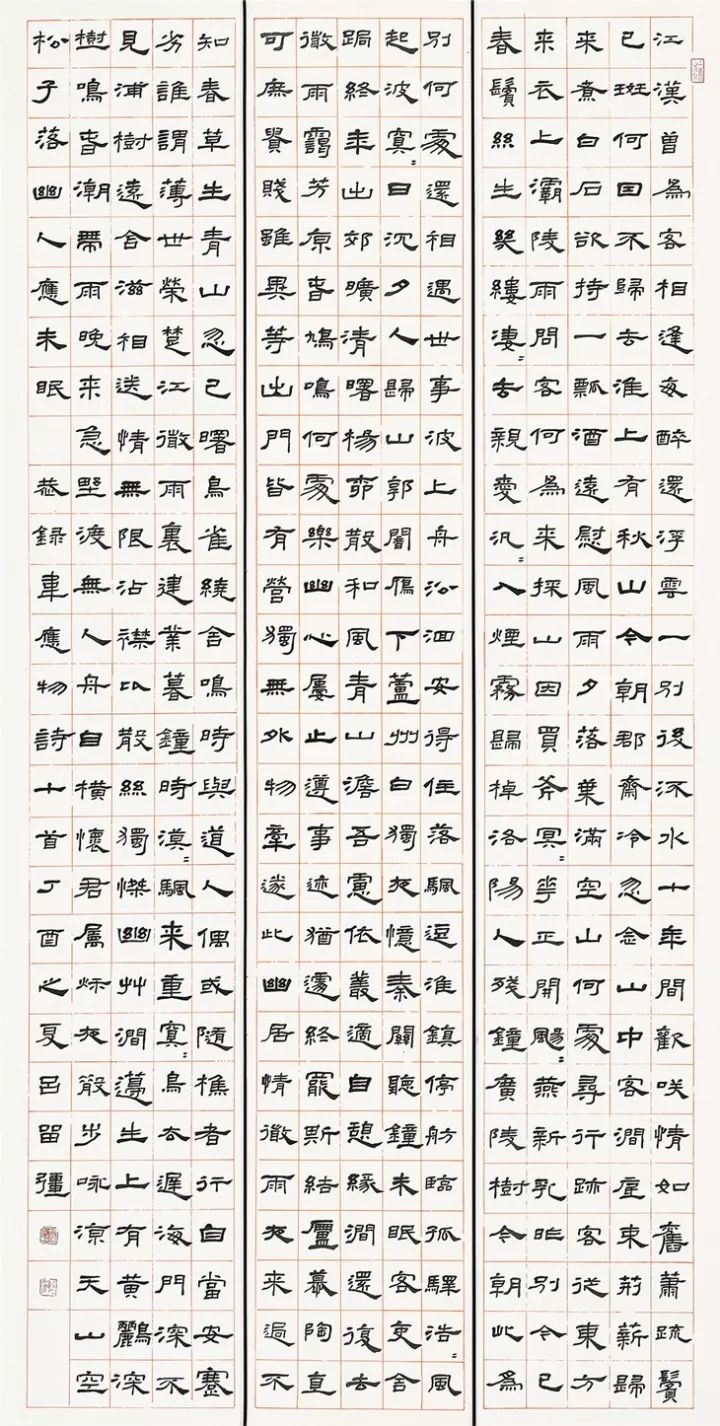 江漢曾為客相逢每醉還浮雲一別後流水十年間歡咲情如舊蕭疏鬢
已斑何因不歸去淮上有秋山今朝郡齋冷忽念山中客澗底束荊薪歸
来煮白石欲持一瓢酒遠慰風雨夕落葉滿空山何處尋行跡客從東方
来衣上灞陵雨問客何為来採山因買斧冥=華正開颺=燕新乳昨別今已
春鬢絲生幾縷凄=去親愛汎=入煙霧歸棹洛陽人殘鐘廣陵樹今朝此為
別何處還相遇世事波上舟沿洄安得住落颿逗淮鎮停舫臨孤驛浩=風
起波冥=日沉夕人歸山郭闇雁下蘆洲白獨夜憶秦關聽鐘未眠客吏舍
跼終年出郊曠清曙楊柳散和風青山澹吾慮依叢適自憩緣澗還復去
微雨靄芳原春鳩鳴何處樂幽心屢止遵事迹猶遽終罷斯結廬慕陶直
可庶貴賤雖異等出門皆有營獨無外物牽遂此幽居情微雨夜来過不
知春草生青山忽已曙鳥雀繞舍鳴時與道人偶或隨樵者行自當安蹇
劣誰謂薄世榮楚江微雨裏建業暮鐘時漠=颿来重冥=鳥去遲海門深不
見浦樹遠含滋相送情無限沾襟比散絲獨憐幽艸澗邊生上有黃鸝深
樹鳴春潮帶雨晚来急野渡無人舟自橫懷君屬秋夜散步咏涼天山空
松子落幽人應未眠 恭録韋應物詩十首丁酉之夏呂留彊